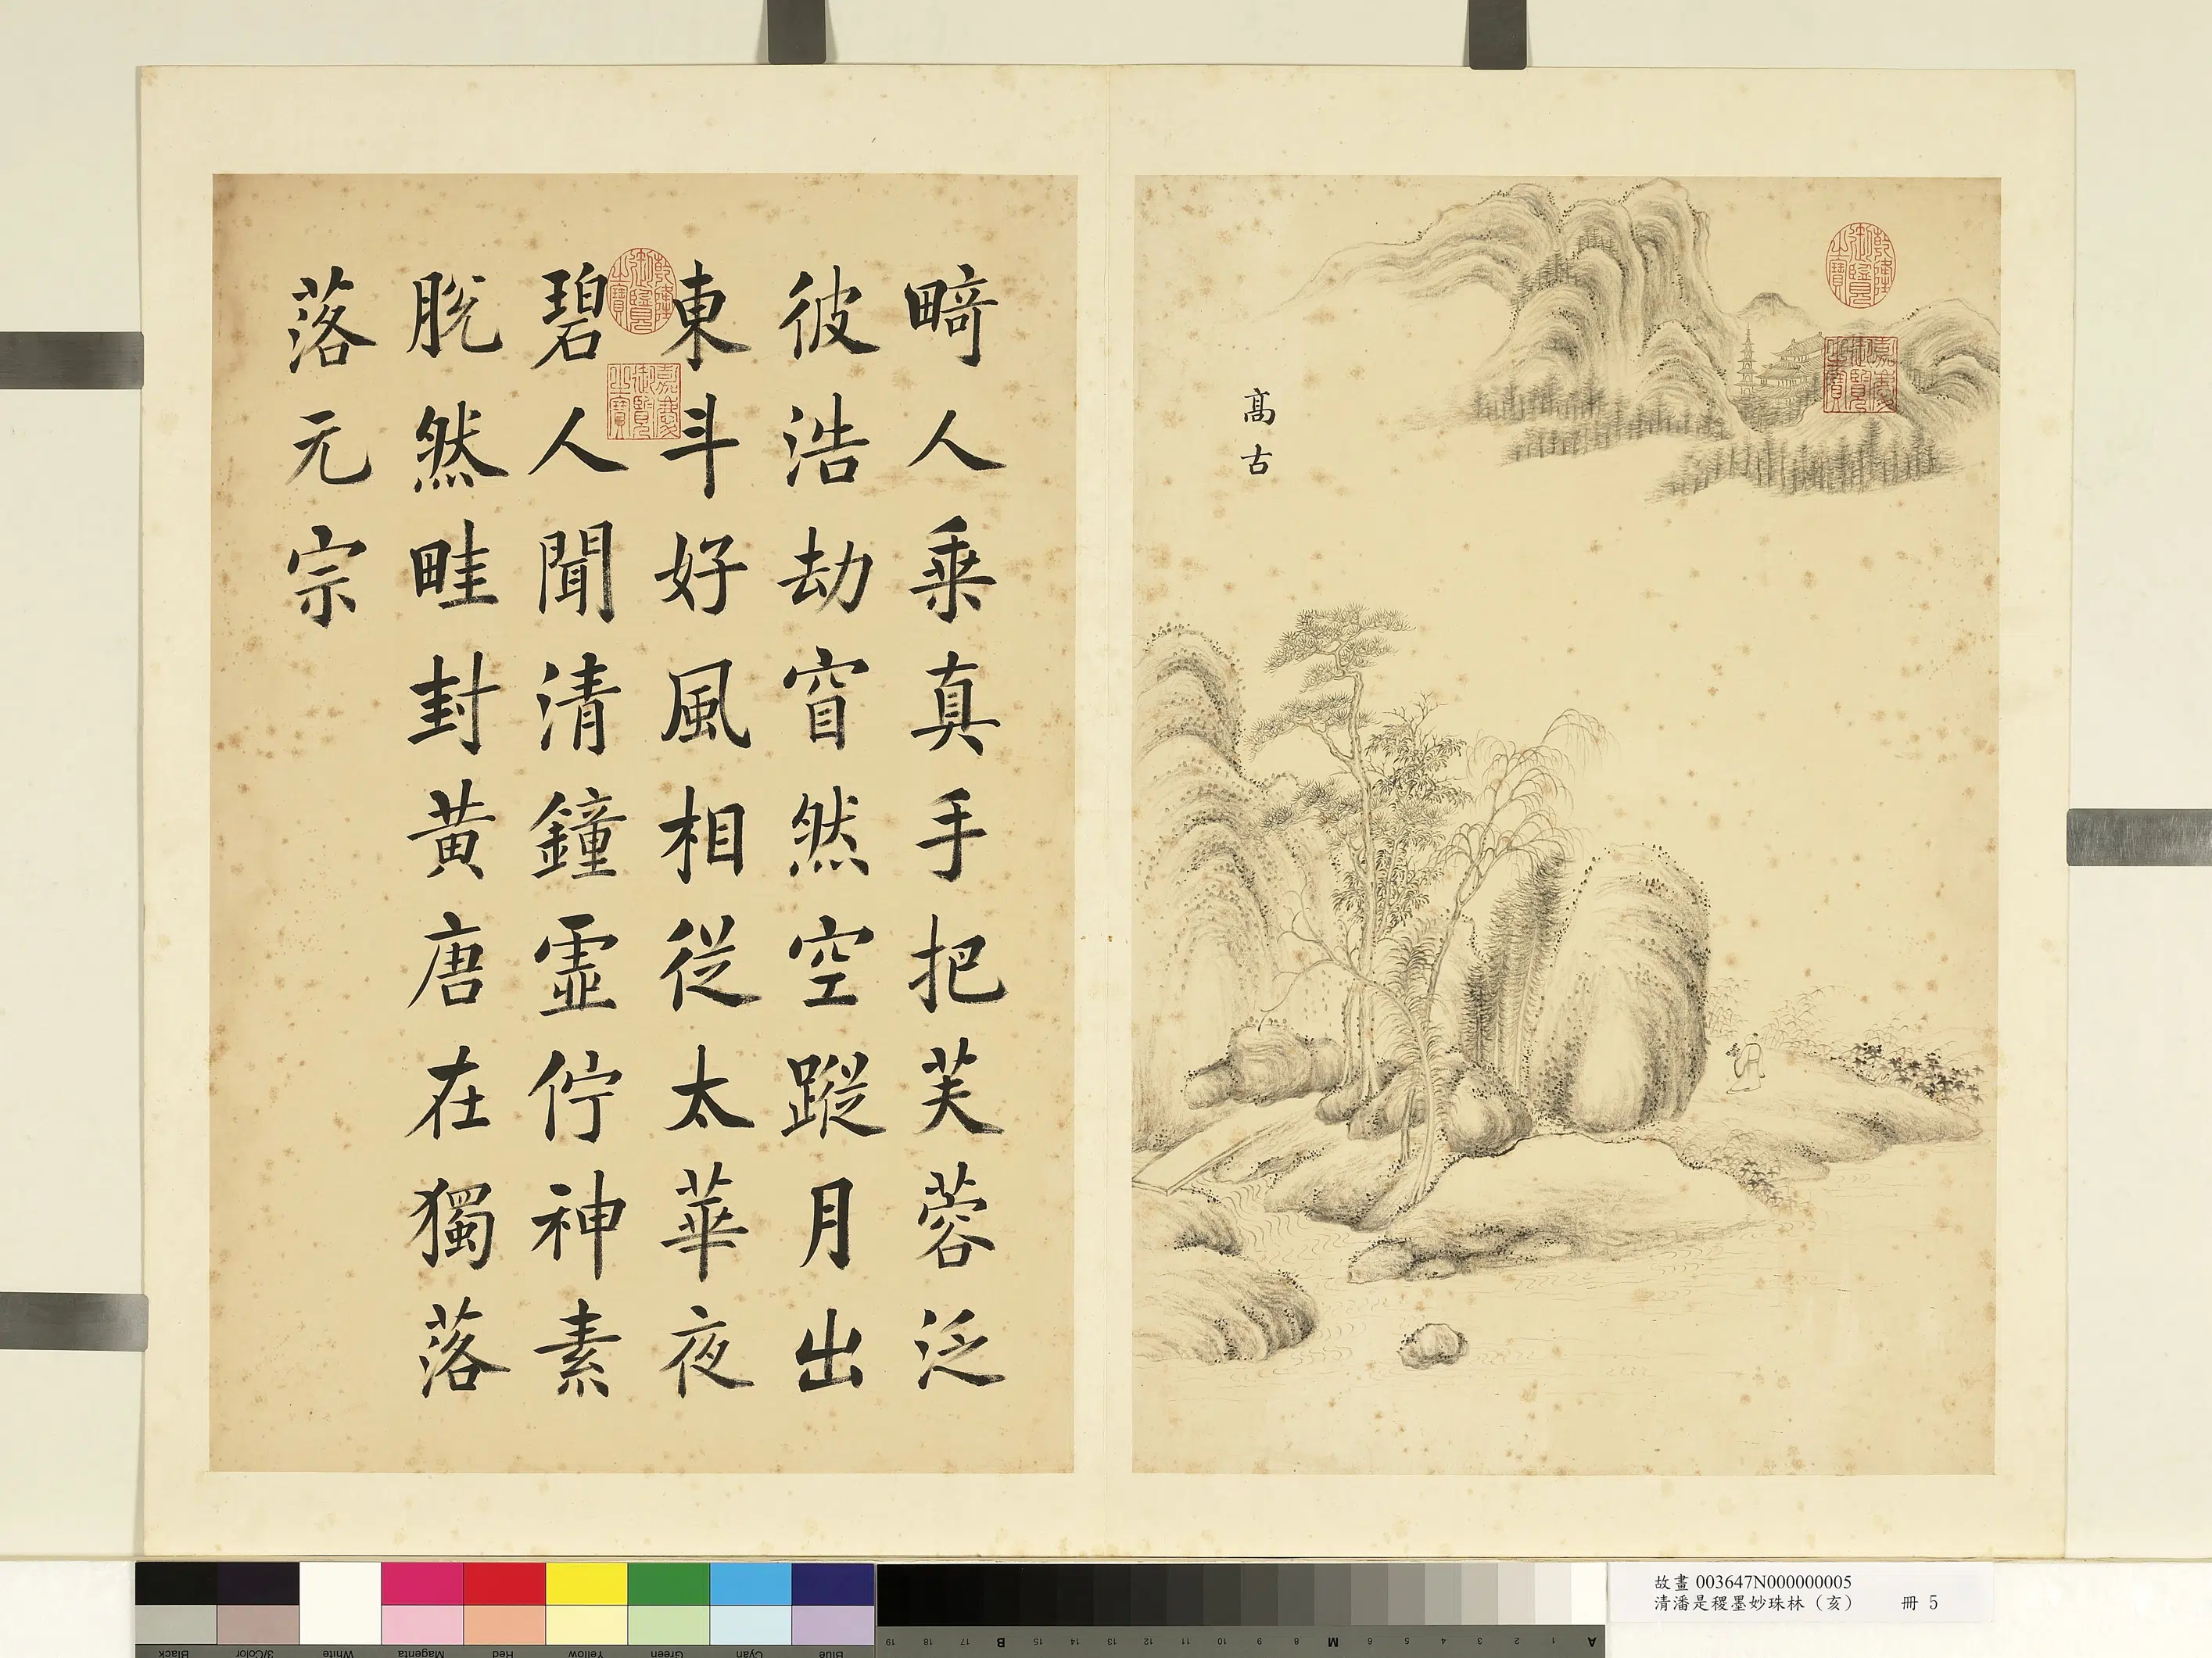 高古
乾隆御覽之寶
嘉慶御覽之寶
畸人乗真手把芙蓉泛
彼浩劫窅然空蹤月出
東斗好風相従太華夜
碧人聞清鐘虛佇神素
脱然畦封黃唐在獨落
落元宗
乾隆御覽之寶
嘉慶御覽之寶
故畫 003647N000000005
清潘是稷墨妙珠林（亥） 冊 5
Black 3/Color White Magenta Red Yellow Green Cyan Blue
19 18 17 B 15 14 13 12 11 10 9 8 M 6 5 4 3 2 1 A